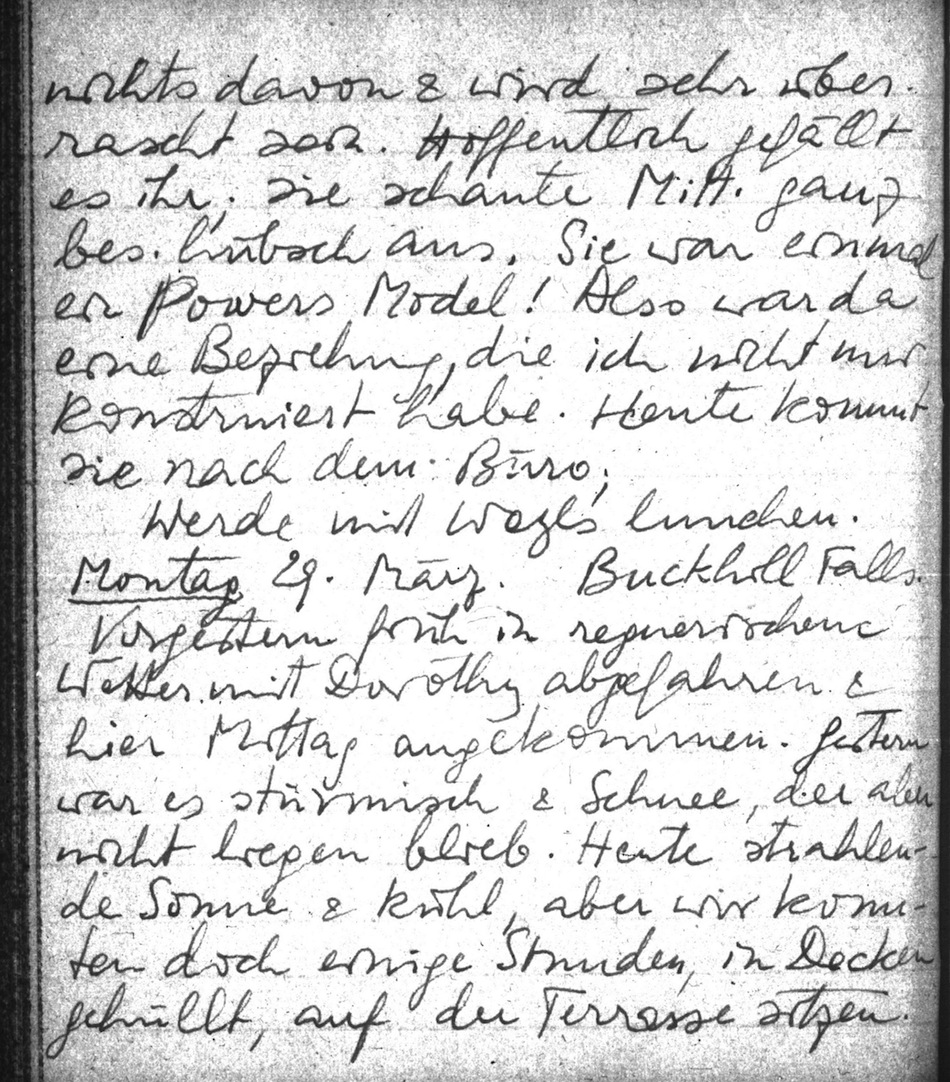 nichts davon & wird sehr über-
rascht sein. Hoffentlich gefällt
es ihr; sie schaute Mitt. ganz
bes. hübsch aus. Sie war einmal
ein Powers Model! Also war da
eine Beziehung, die ich nicht nur
konstruiert habe. Heute kommt
sie nach dem Büro;
Werde mit lunchen.
Montag 29. März. Buckhill Falls.
Vorgestern früh in regnerischem
Wetter mit Dorothy abgefahren &
hier Mittag angekommen. Gestern
war es stürmisch & Schnee, der aber
nicht liegen blieb. Heute strahlen-
de Sonne & kühl, aber wir konn-
ten doch einige Stunden, in Decken
gehüllt, auf der Terrasse sitzen.